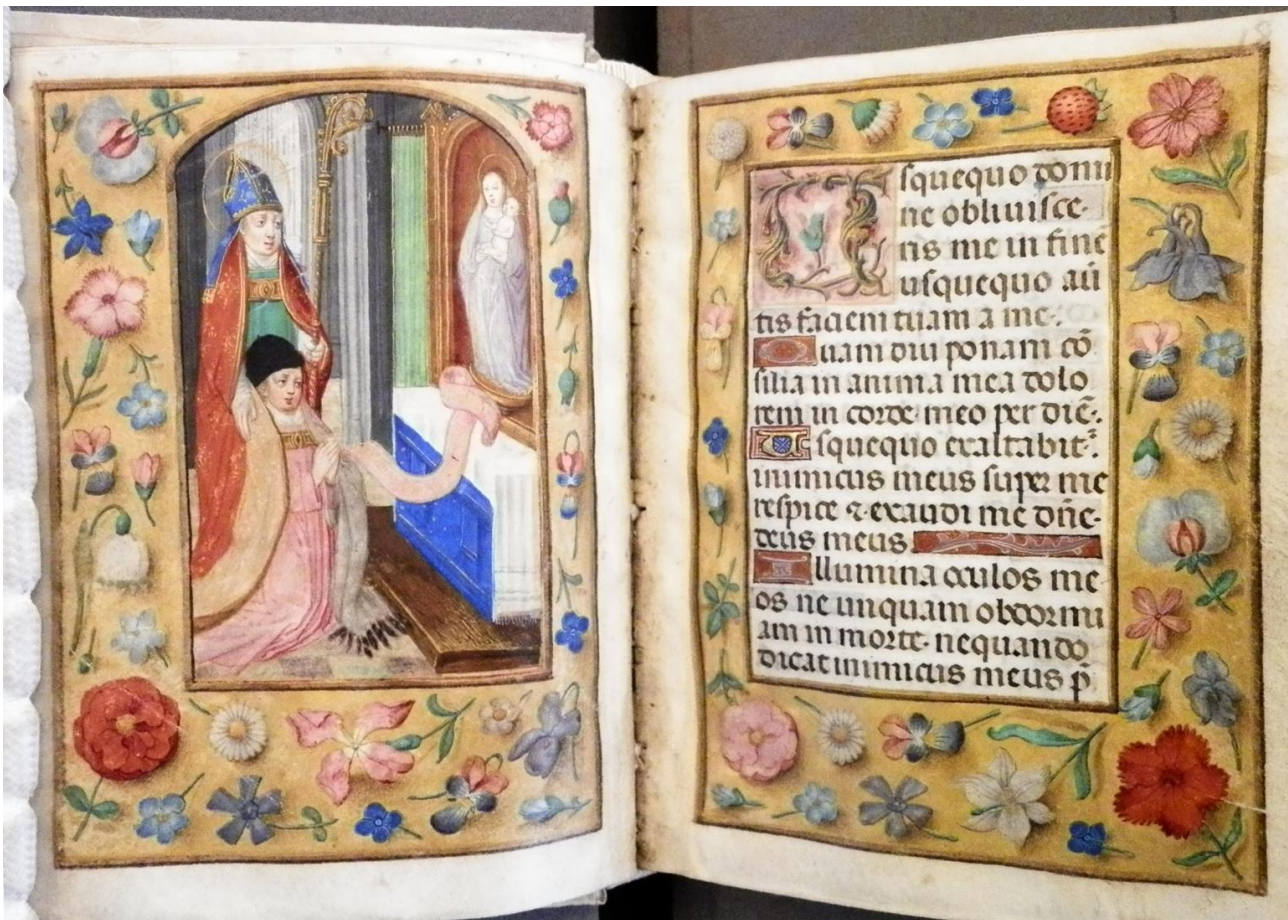 Usquequo domi
ne obliuisce-
ris me in finē
usquequo auē
tis faciem tuam a me:
Quam diu ponam cō
silia in anima mea dolo
rem in corde meo per diē:
Usquequo exaltabit᷑
inimicus meus super me
respice ⁊ exaudi me dn̄e-
deus meus
Illumina oculos me
os ne unquam obdormi
am in morte· nequando
dicat inimicus meus p̄